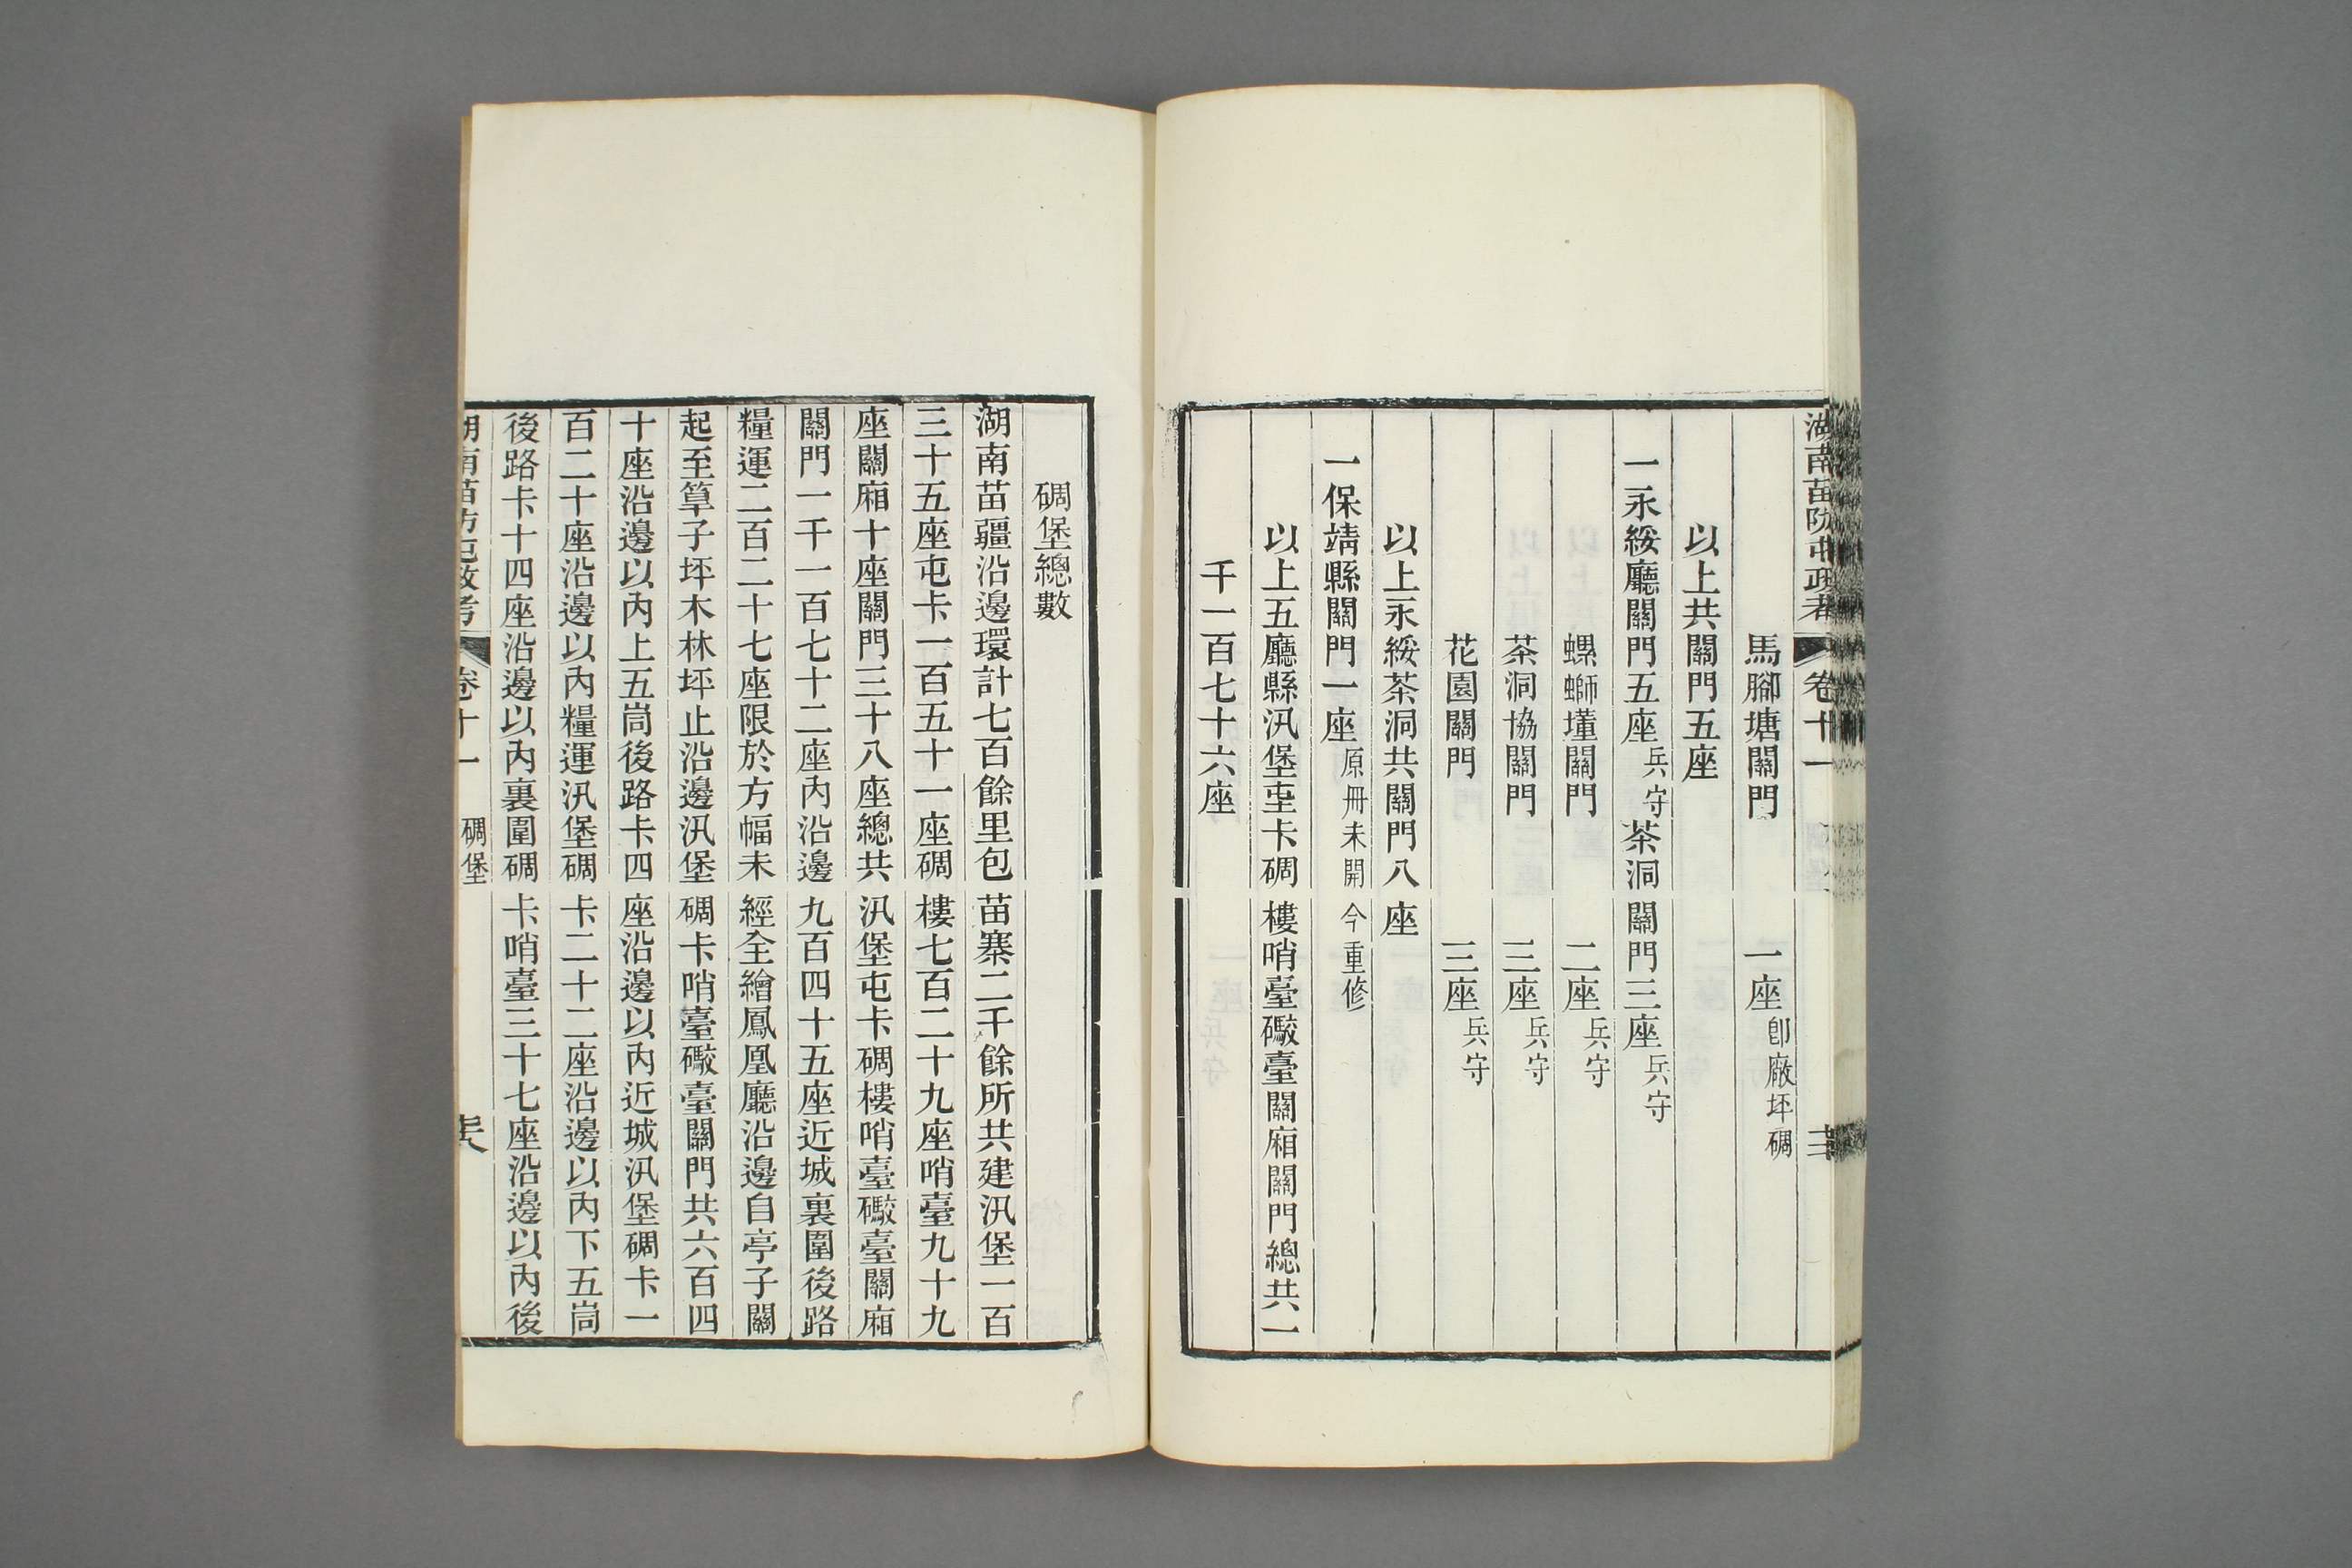 湖南苗防屯政考 卷十一
馬腳塘關門 一座 卽廠坪碉
以上共關門五座
一永綏廳關門五座 兵守 茶洞關門三座 兵守
螺螄墐關門 二座 兵守
茶洞協關門 三座 兵守
花園關門 三座 兵守
以上永綏茶洞共關門八座
一保靖縣關門一座 原冊未開今重修
以上五廳縣汛堡屯卡碉樓哨臺礮臺關廂關門總共一
千一百七十六座
碉堡總數
湖南苗疆沿邊環計七百餘里包苗寨二千餘所共建汛堡一百
三十五座屯卡一百五十一座碉樓七百二十九座哨臺九十九
座關廂十座關門三十八座總共汛堡屯卡碉樓哨臺礮臺關廂
關門一千一百七十二座內沿邊九百四十五座近城裏圍後路
糧運二百二十七座限於方幅未經全繪鳳凰廳沿邊自亭子關
起至筸子坪木林坪止沿邊汛堡碉卡哨臺礮臺關門共六百四
十座沿邊以內上五峝後路卡四座沿邊以內近城汛堡碉卡一
百二十座沿邊以內糧運汛堡碉卡二十二座沿邊以內下五峝
後路卡十四座沿邊以內裏圍碉卡哨臺三十七座沿邊以內後
湖南苗防屯政考 卷十一 碉堡